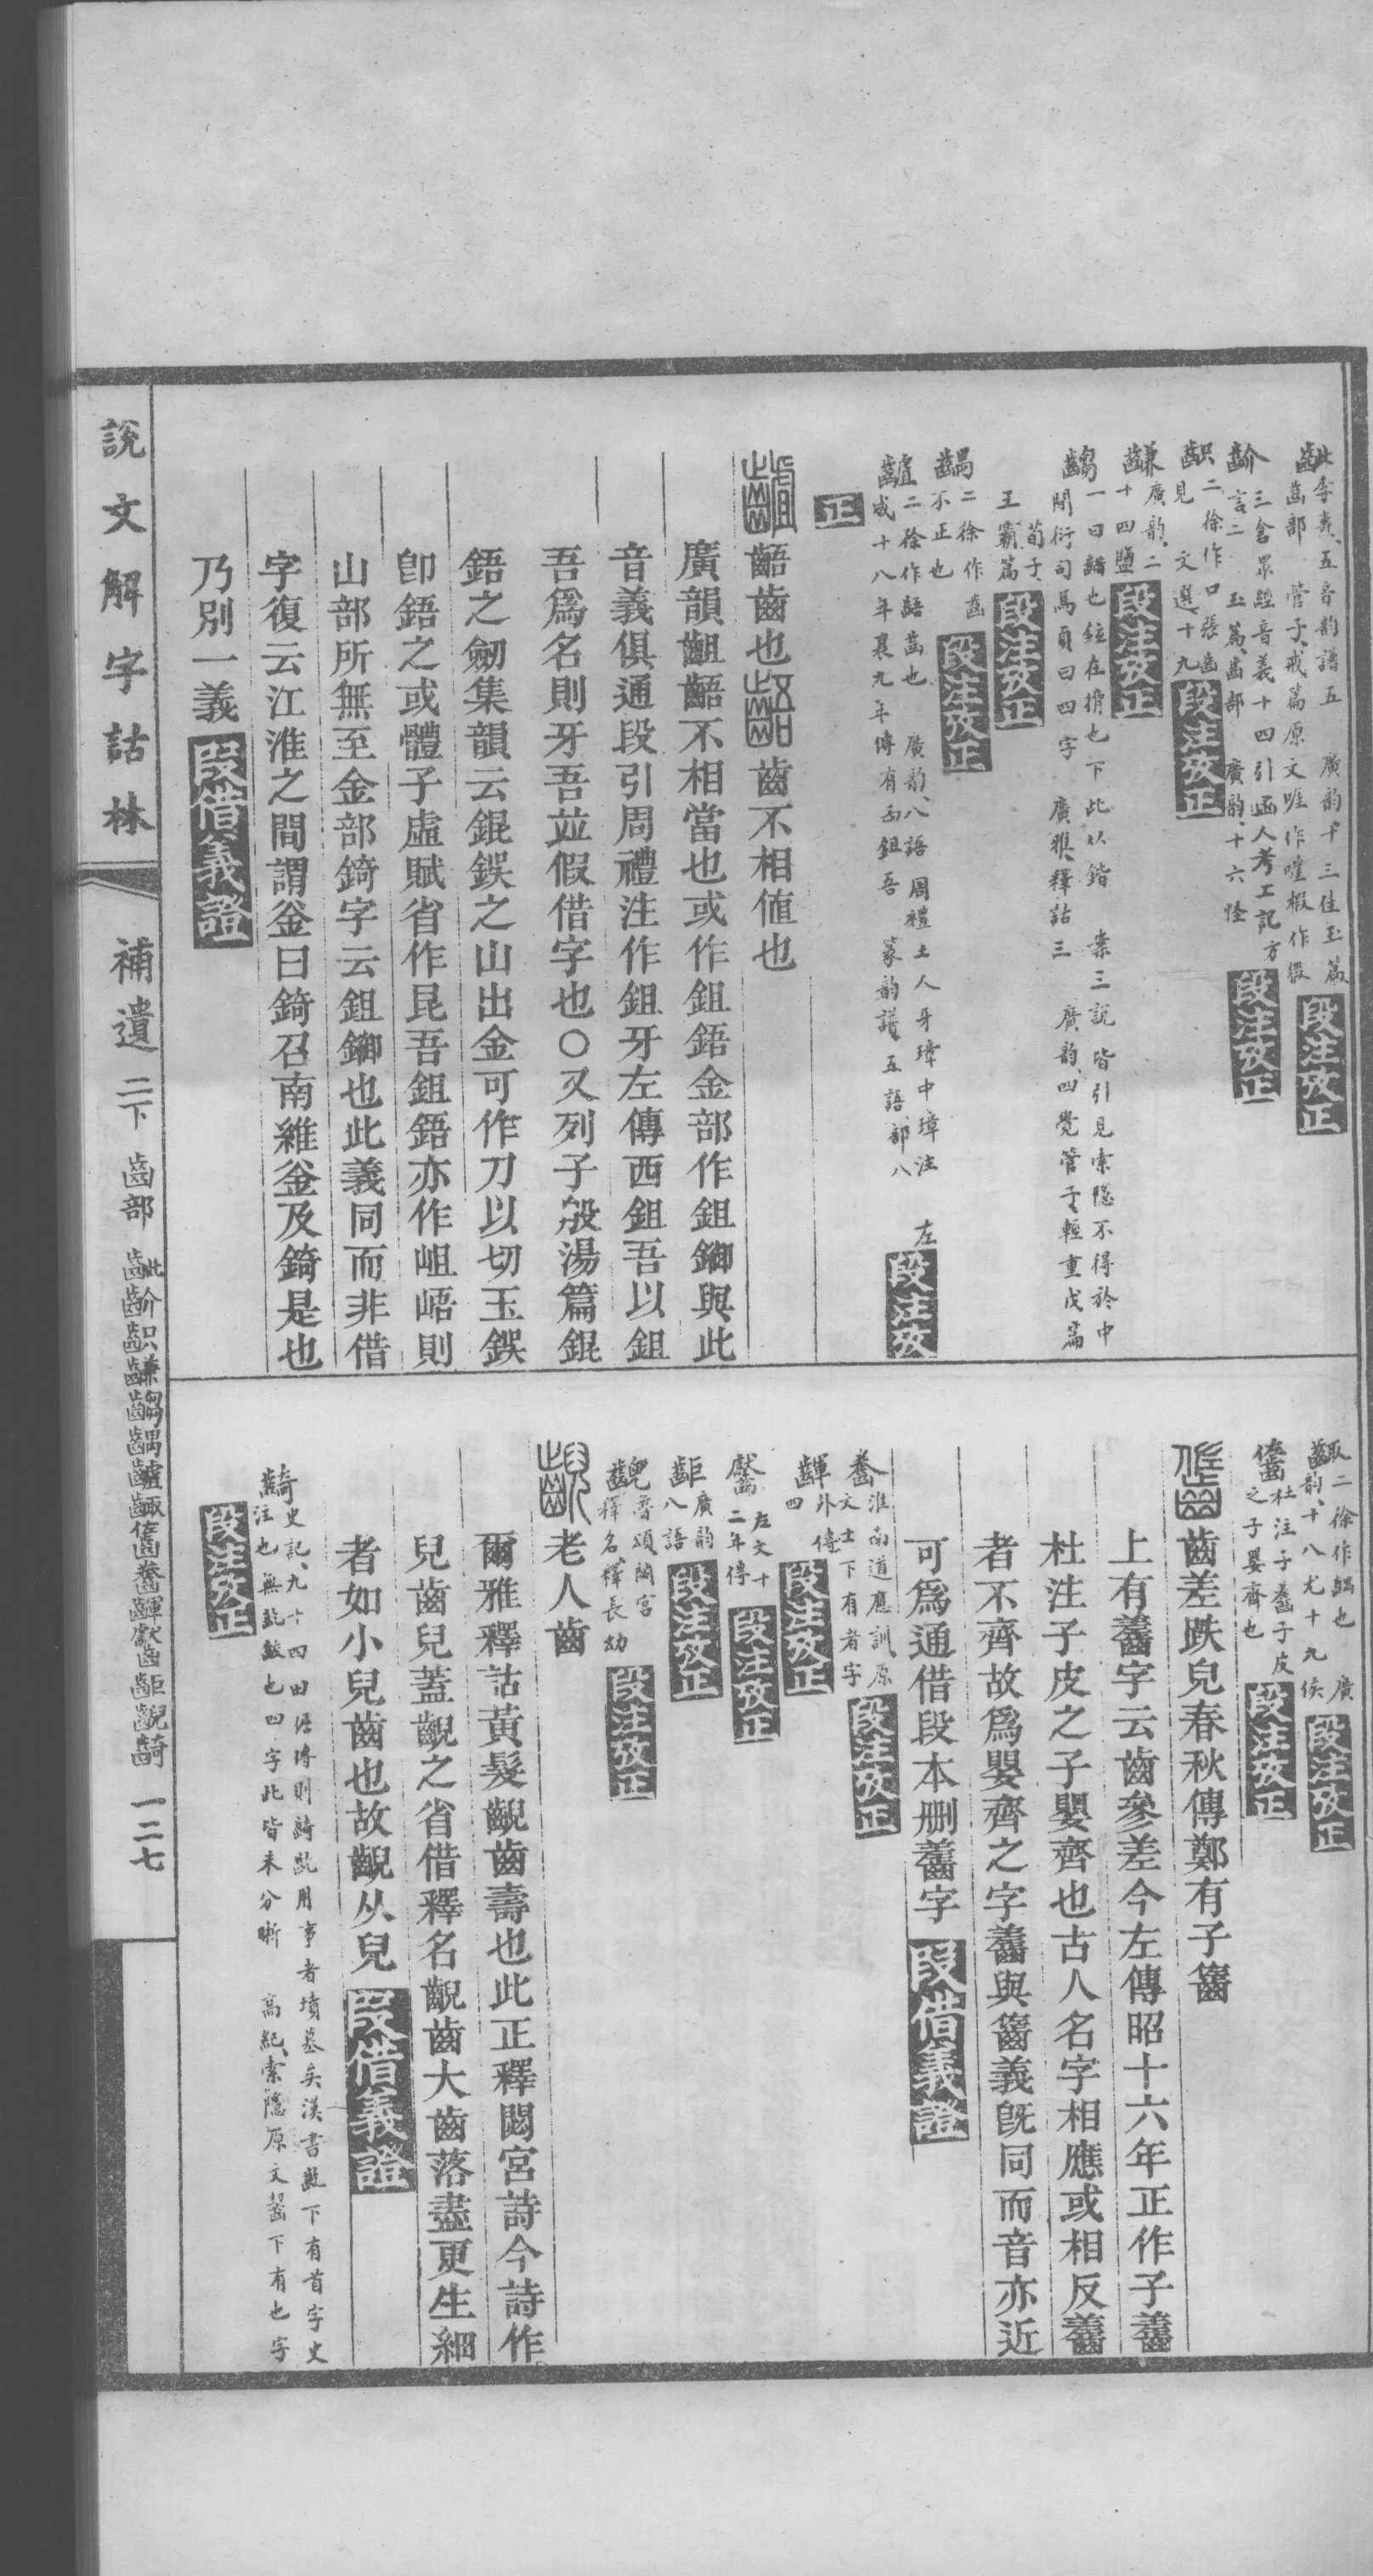 齜李燾五音韵譜五　廣韵十三佳玉篇
齒部　管子戒篇原文啀作嘊椵作猳　段注攷正
齘三倉眾經音義十四引函人考工記方
言二　玉篇齒部　廣韵十六怪　段注攷正
齞二徐作口張齒
見　文選十九　段注攷正
䶢廣韵二
十四鹽　段注攷正
齺一曰齰也錯在搚也下此以鍇　案三說皆引見索隱不得於中
閒衍司馬貞曰四字　廣雅釋詁三　廣韵四覺管子輕重戊篇
荀子
王霸篇　段注攷正
齵二徐作齒
不正也　段注攷正
齇二徐作齬齒也　廣韵八語周禮土人牙璋中璋注　左
成十八年襄九年傳有西鉏吾　篆韵譜五語部八　段注攷
正
齟齬齒也齬齒不相值也
廣韻齟齬不相當也或作鉏鋙金部作鉏鋤與此
音義俱通段引周禮注作鉏牙左傳西鉏吾以鉏
吾爲名則牙吾竝假借字也○又列子殷湯篇錕
鋙之劒集韻云錕鋘之山出金可作刀以切玉鋘
卽鋙之或體子虛賦省作昆吾鉏鋙亦作岨峿則
山部所無至金部錡字云鉏鋤也此義同而非借
字復云江淮之間謂釜曰錡召南維釜及錡是也
乃別一義　段借義證
齱二徐作齵也　廣
韵十八尤十九侯　段注攷正
杜注子齹子皮
之子嬰齊也　段注攷正
齒差跌皃春秋傳鄭有子䶳
上有齹字云齒參差今左傳昭十六年正作子齹
杜注子皮之子嬰齊也古人名字相應或相反齹
者不齊故爲嬰齊之字齹與䶳義旣同而音亦近
可爲通借段本刪齹字　段借義證
齤淮南道應訓原
文士下有者字　段注攷正
齳外傳
四　段注攷正
左文十
二年傳　段注攷正
齨廣韵
八語　段注攷正
齯魯頌閟宮
釋名釋長幼　段注攷正
齯老人齒
爾雅釋詁黃髮齯齒壽也此正釋閟宮詩今詩作
兒齒兒蓋齯之省借釋名齯齒大齒落盡更生細
者如小兒齒也故齯从兒　段借義證
齮史記九十四田儋傳則齮齕用事者墳墓矣漢書齕下有首字史
注也無齕齩也四字此皆未分晰　高紀索隱原文齧下有也字
段注攷正
說文解字詁林　補遺　二下　齒部　一二七